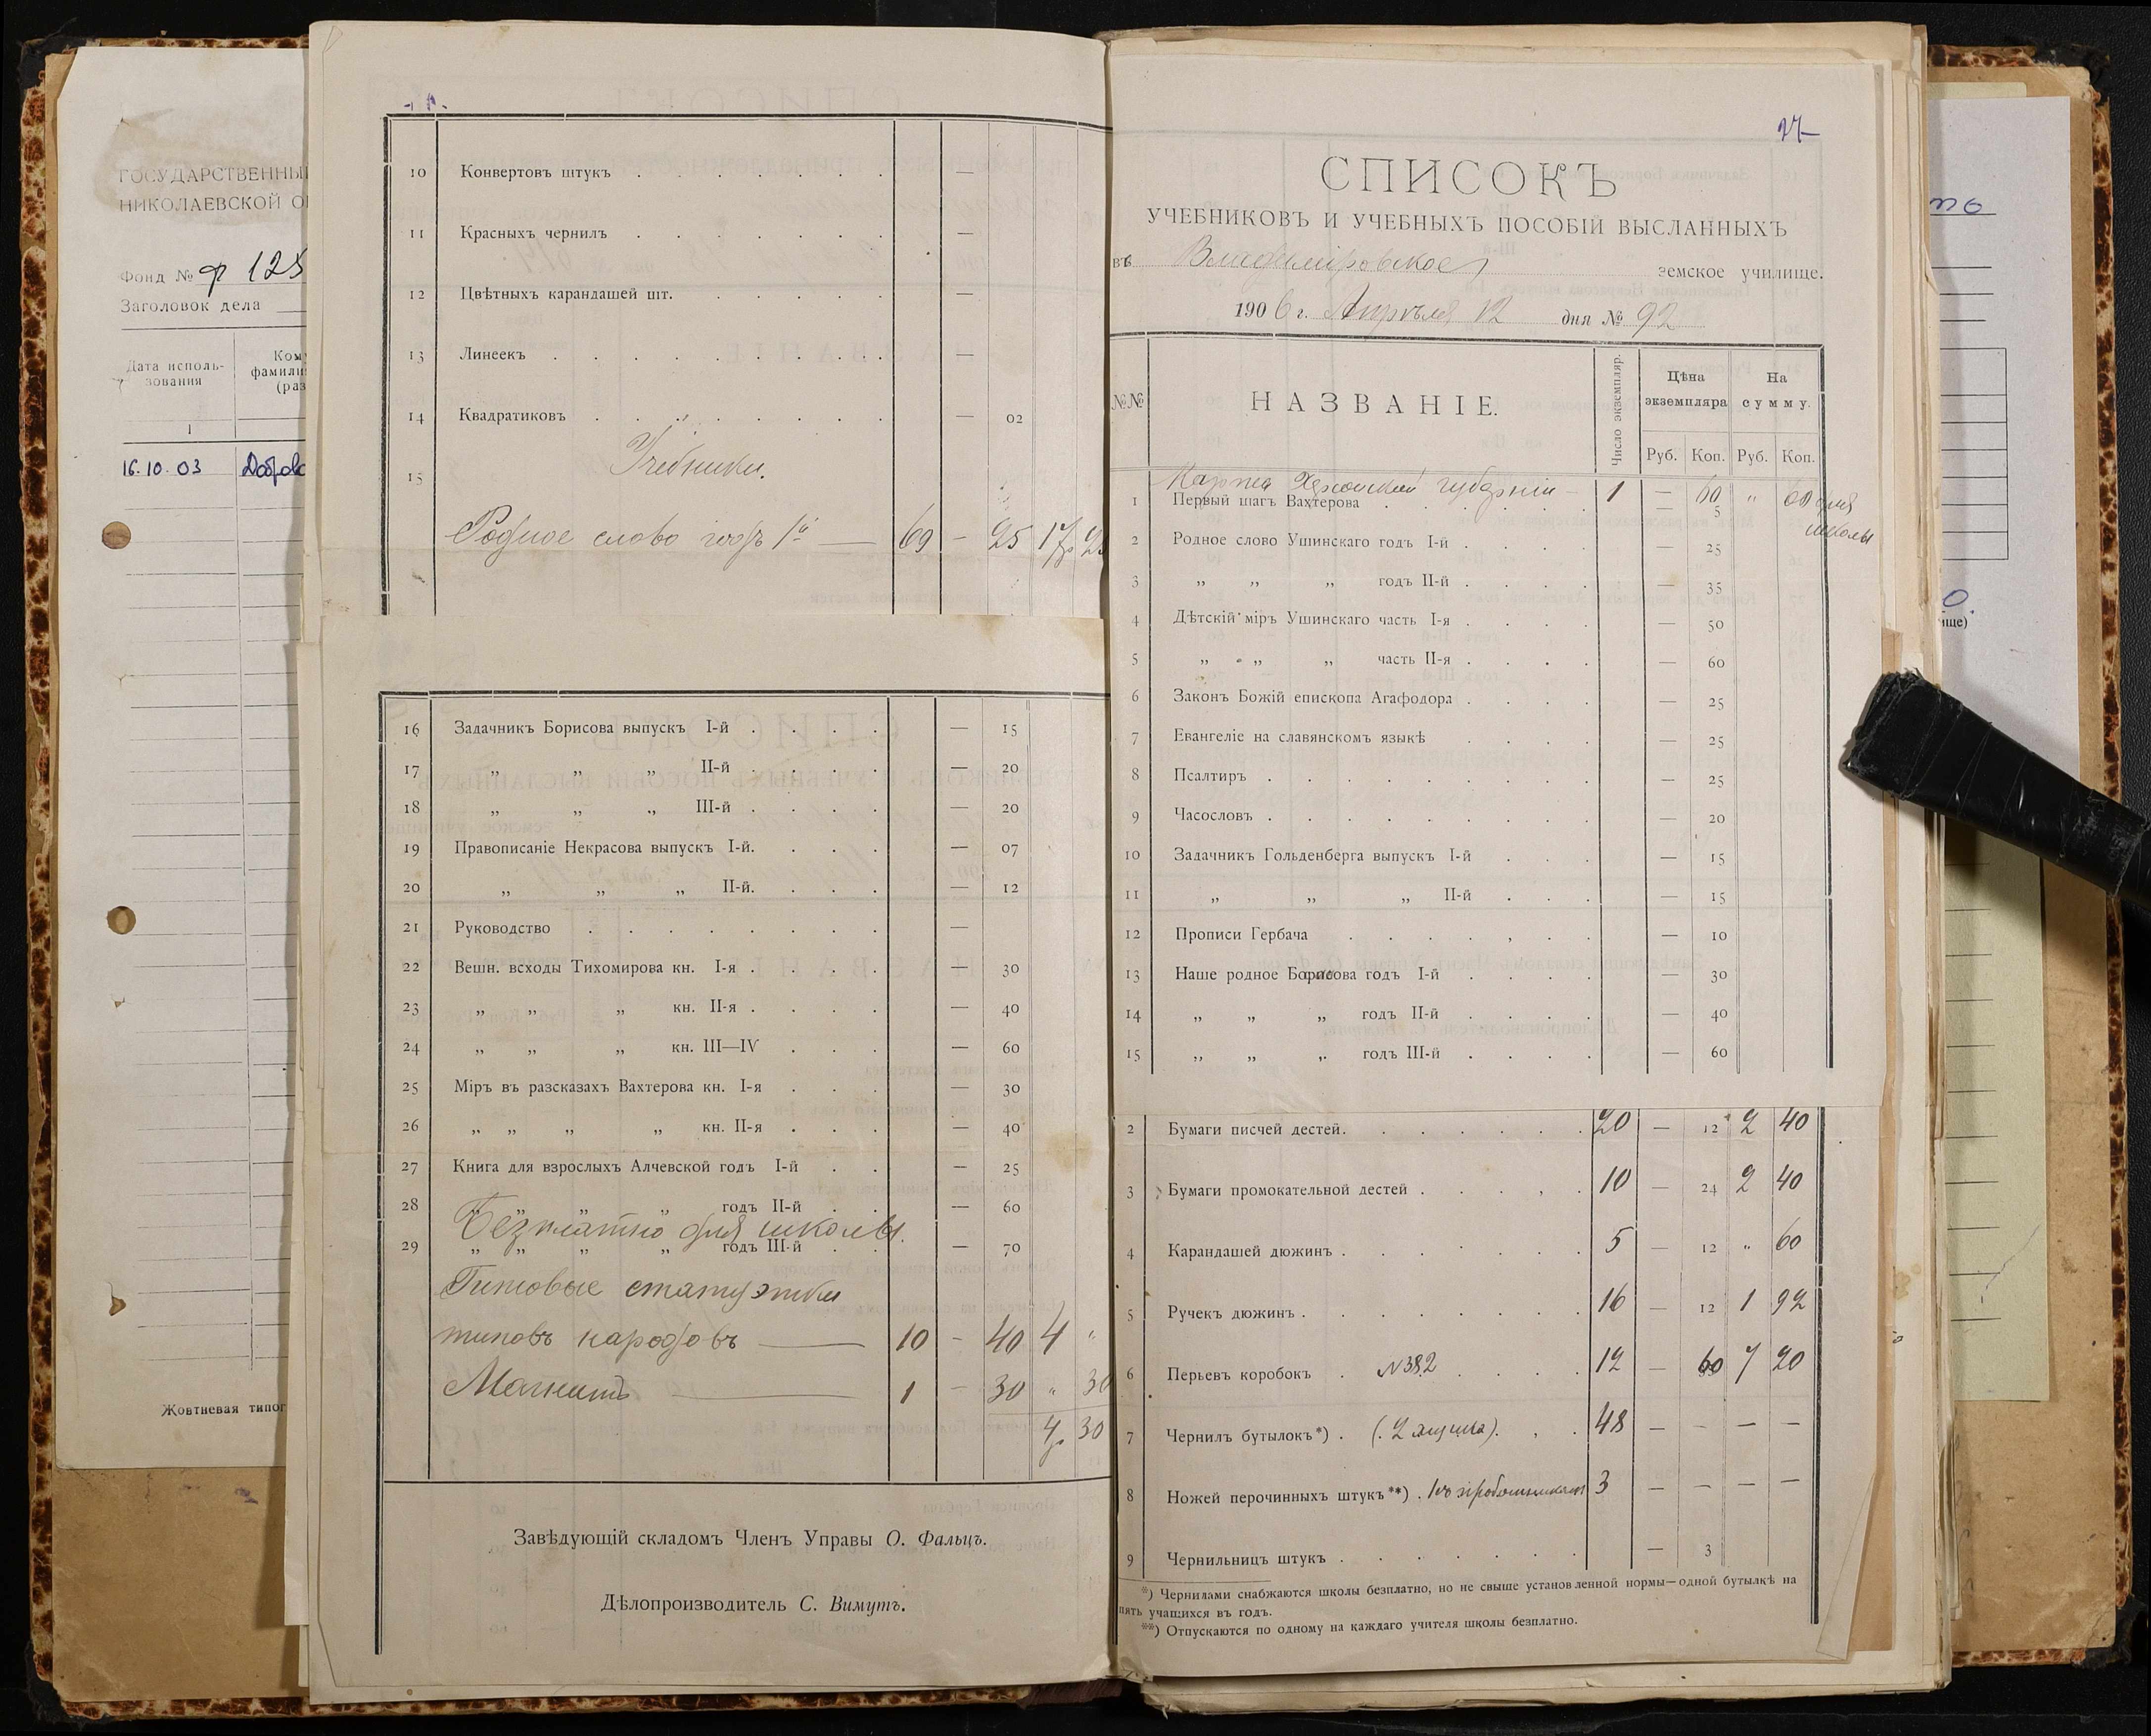 ГОСУДАРСТВЕННЫ
НИКОЛАЕВСКОЙ О
Фонд № ф 128
Заголовок дела
Дата исполь-зования
Ком
фамили
(раз
1
16.10.03 Добров
Жовтневая типог
10 Конвертовъ штукъ —
11 Красныхъ чернилъ —
12 Цвѣтныхъ карандашей шт. —
13 Линеекъ —
14 Квадратиковъ — 02
15 Учебники.
Родное слово годъ 1й — 69 — 25 17р 2
16 Задачникъ Борисова выпускъ I-й — 15
17 „ „ „ II-й — 20
18 „ „ „ III-й — 20
19 Правописаніе Некрасова выпускъ I-й. — 07
20 „ „ „ II-й. — 12
21 Руководство —
22 Вешн. всходы Тихомирова кн. I-я — 30
23 „ „ „ кн. II-я — 40
24 „ „ „ кн. III—IV — 60
25 Міръ въ разсказахъ Вахтерова кн. I-я — 30
26 „ „ „ „ кн. II-я — 40
27 Книга для взрослыхъ Алчевской годъ I-й — 25
28 „ „ „ „ годъ II-й — 60
Безплатно для школы.
29 „ „ „ „ годъ III-й — 70
Гипсовые статуэтки
типовъ народовъ — 10 — 40 4 "
Магнитъ — 1 — 30 " 30
4р 30
Завѣдующій складомъ Членъ Управы О. Фальцъ.
Дѣлопроизводитель С. Вимутъ.
27
СПИСОКЪ
УЧЕБНИКОВЪ И УЧЕБНЫХЪ ПОСОБІЙ ВЫСЛАННЫХЪ
въ Владиміровское земское училище.
1906 г. Апрѣля 12 дня № 92
№№ НАЗВАНІЕ. Число экземпляр. Цѣна экземпляра На сумму.
Руб. Коп. Руб. Коп.
Карта Херсонской губерніи — 1 — 60 " 60 для школы
1 Первый шагъ Вахтерова — 5
2 Родное слово Ушинскаго годъ I-й — 25
3 „ „ „ годъ II-й — 35
4 Дѣтскій міръ Ушинскаго часть I-я — 50
5 „ „ „ часть II-я — 60
6 Законъ Божій епископа Агафодора — 25
7 Евангеліе на славянскомъ языкѣ — 25
8 Псалтиръ — 25
9 Часословъ — 20
10 Задачникъ Гольденберга выпускъ I-й — 15
11 „ „ „ II-й — 15
12 Прописи Гербача — 10
13 Наше родное Борисова годъ I-й — 30
14 „ „ „ годъ II-й — 40
15 „ „ „ годъ III-й — 60
2 Бумаги писчей дестей. 20 — 12 2 40
3 Бумаги промокательной дестей 10 — 24 2 40
4 Карандашей дюжинъ 5 — 12 " 60
5 Ручекъ дюжинъ 16 — 12 1 92
6 Перьевъ коробокъ N382 12 — 60 7 20
7 Чернилъ бутылокъ*) (2 ящика). 48 — — — —
8 Ножей перочинныхъ штукъ**) 3 — — — —
9 Чернильницъ штукъ — 3
*) Чернилами снабжаются школы безплатно, но не свыше установленной нормы—одной бутылкѣ на
пять учащихся въ годъ.
**) Отпускаются по одному на каждаго учителя школы безплатно.